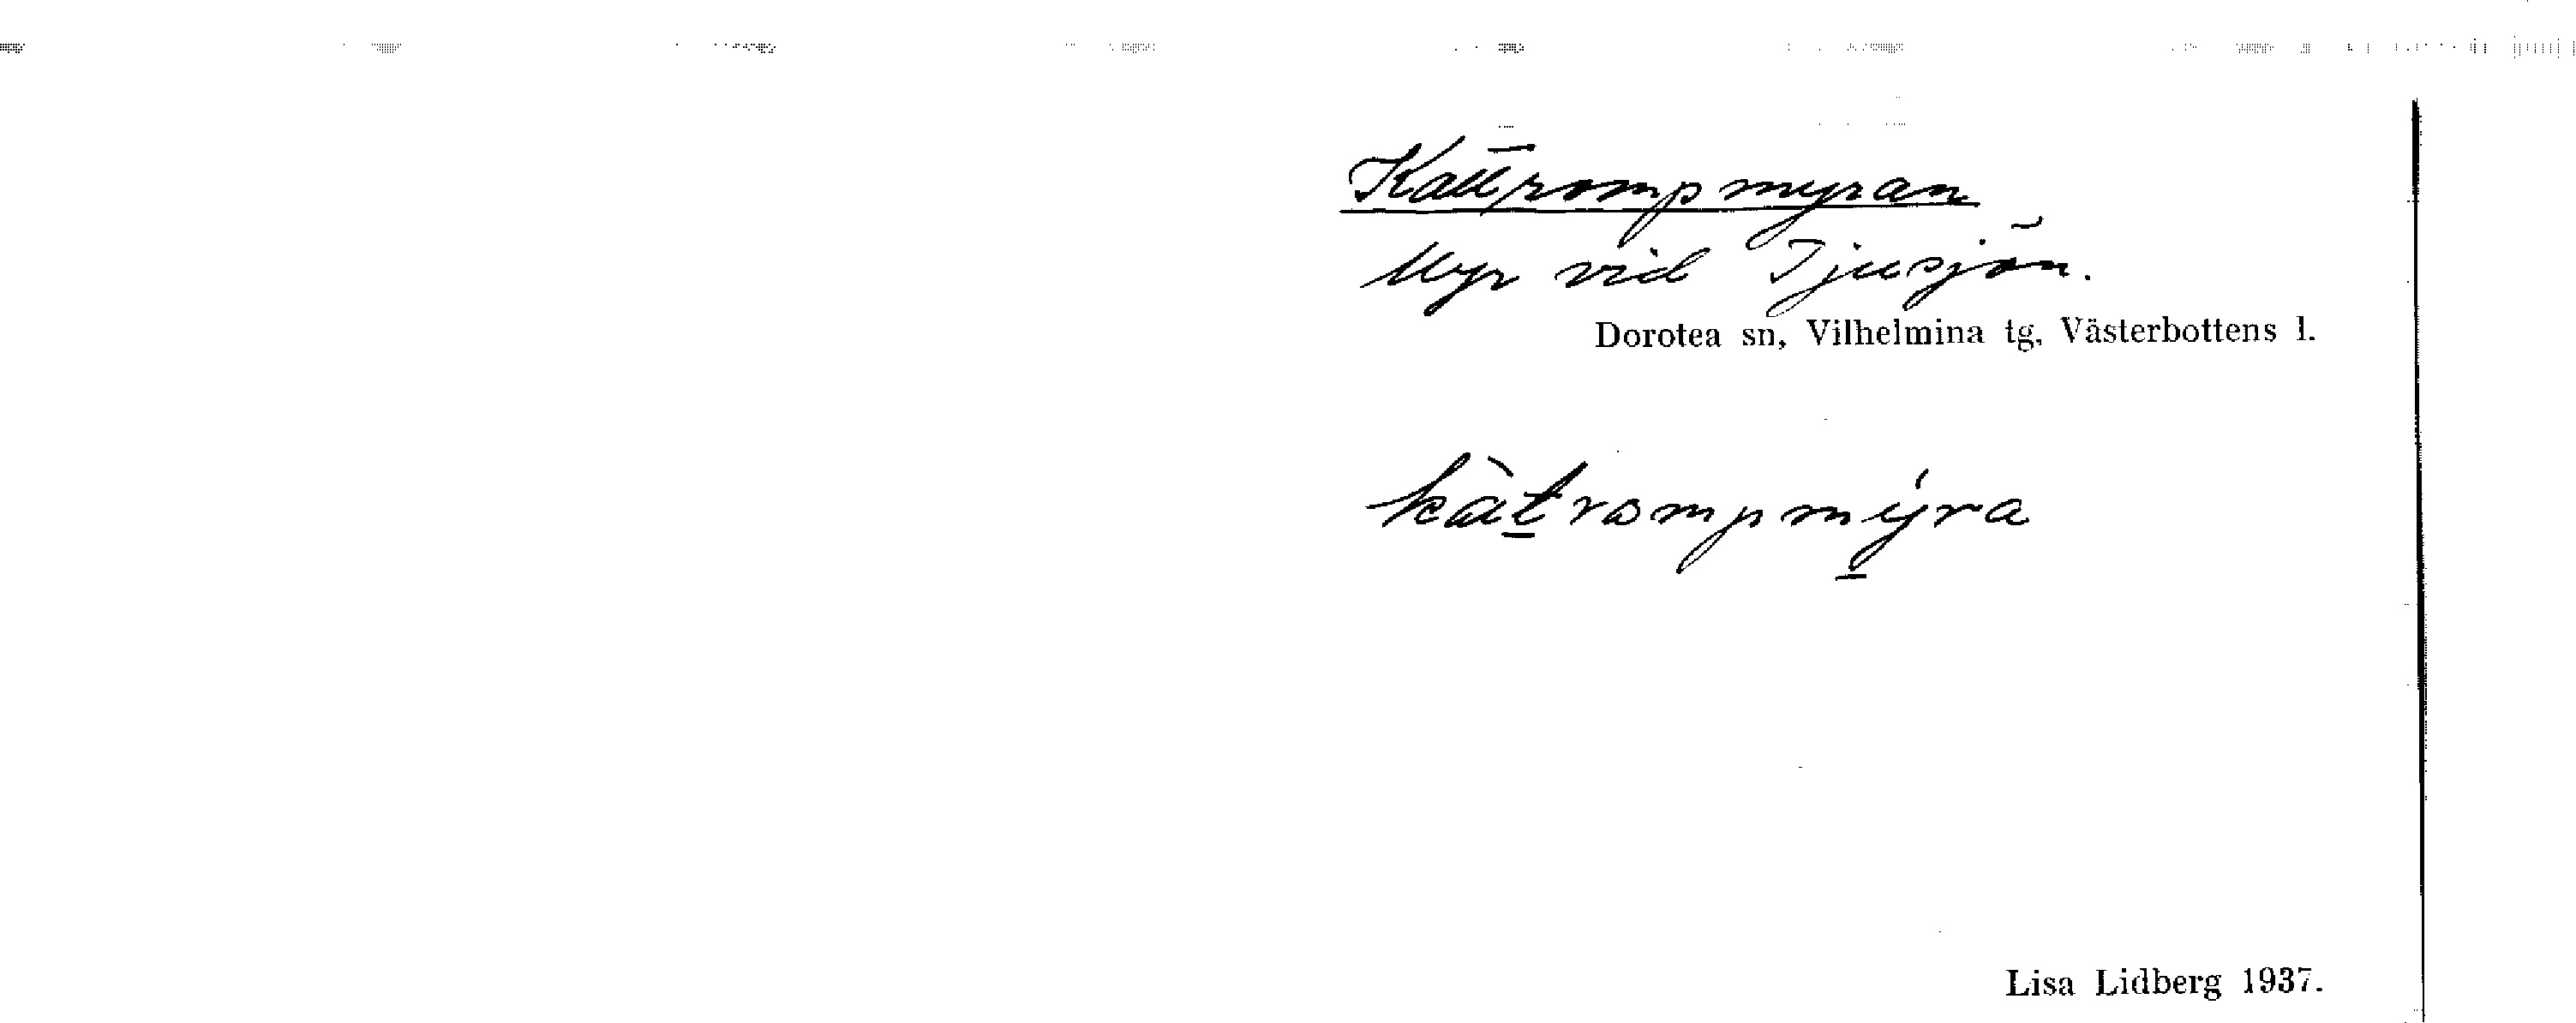 Kattrompmyran
Myr vid Tjusjön.
Dorotea sn, Vilhelmina tg, Västerbottens l.
kàtrompmýra
Lisa Lidberg 1937.